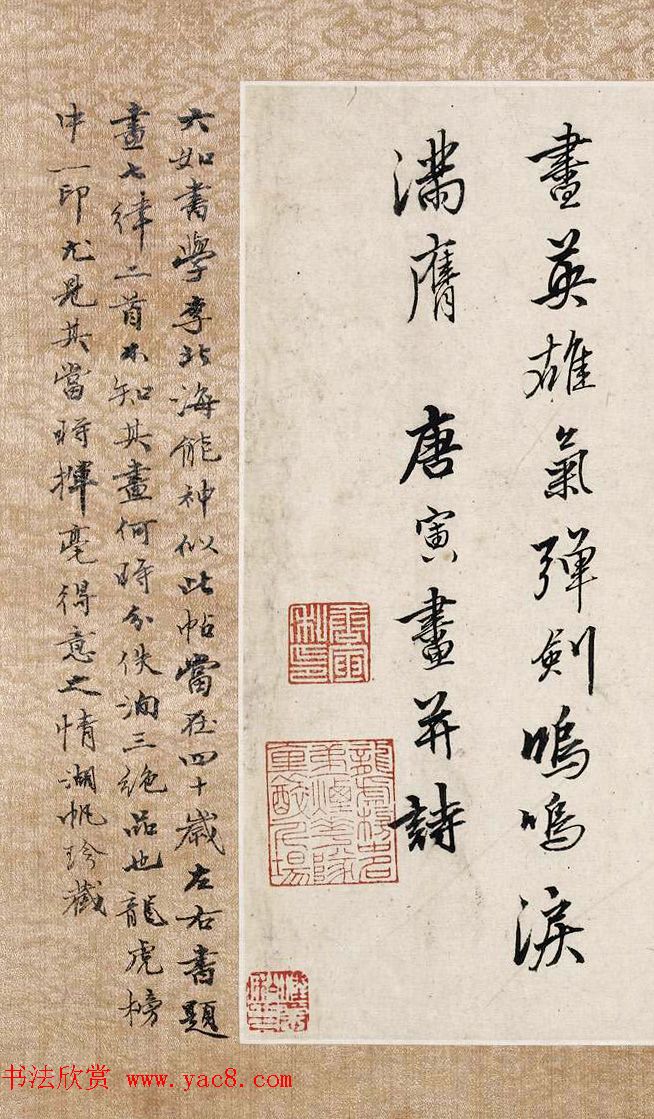 畫英雄氣彈劍嗚嗚淚
滿膺 唐寅畫并詩
唐寅私印
六如書學李北海能神似此帖當在四十歲左右書題
畫七律二首不知其畫何時分佚洵三絕品也龍虎榜
中一印尤見其當時揮毫得意之情湖帆珍藏
书法欣赏 www.yac8.com